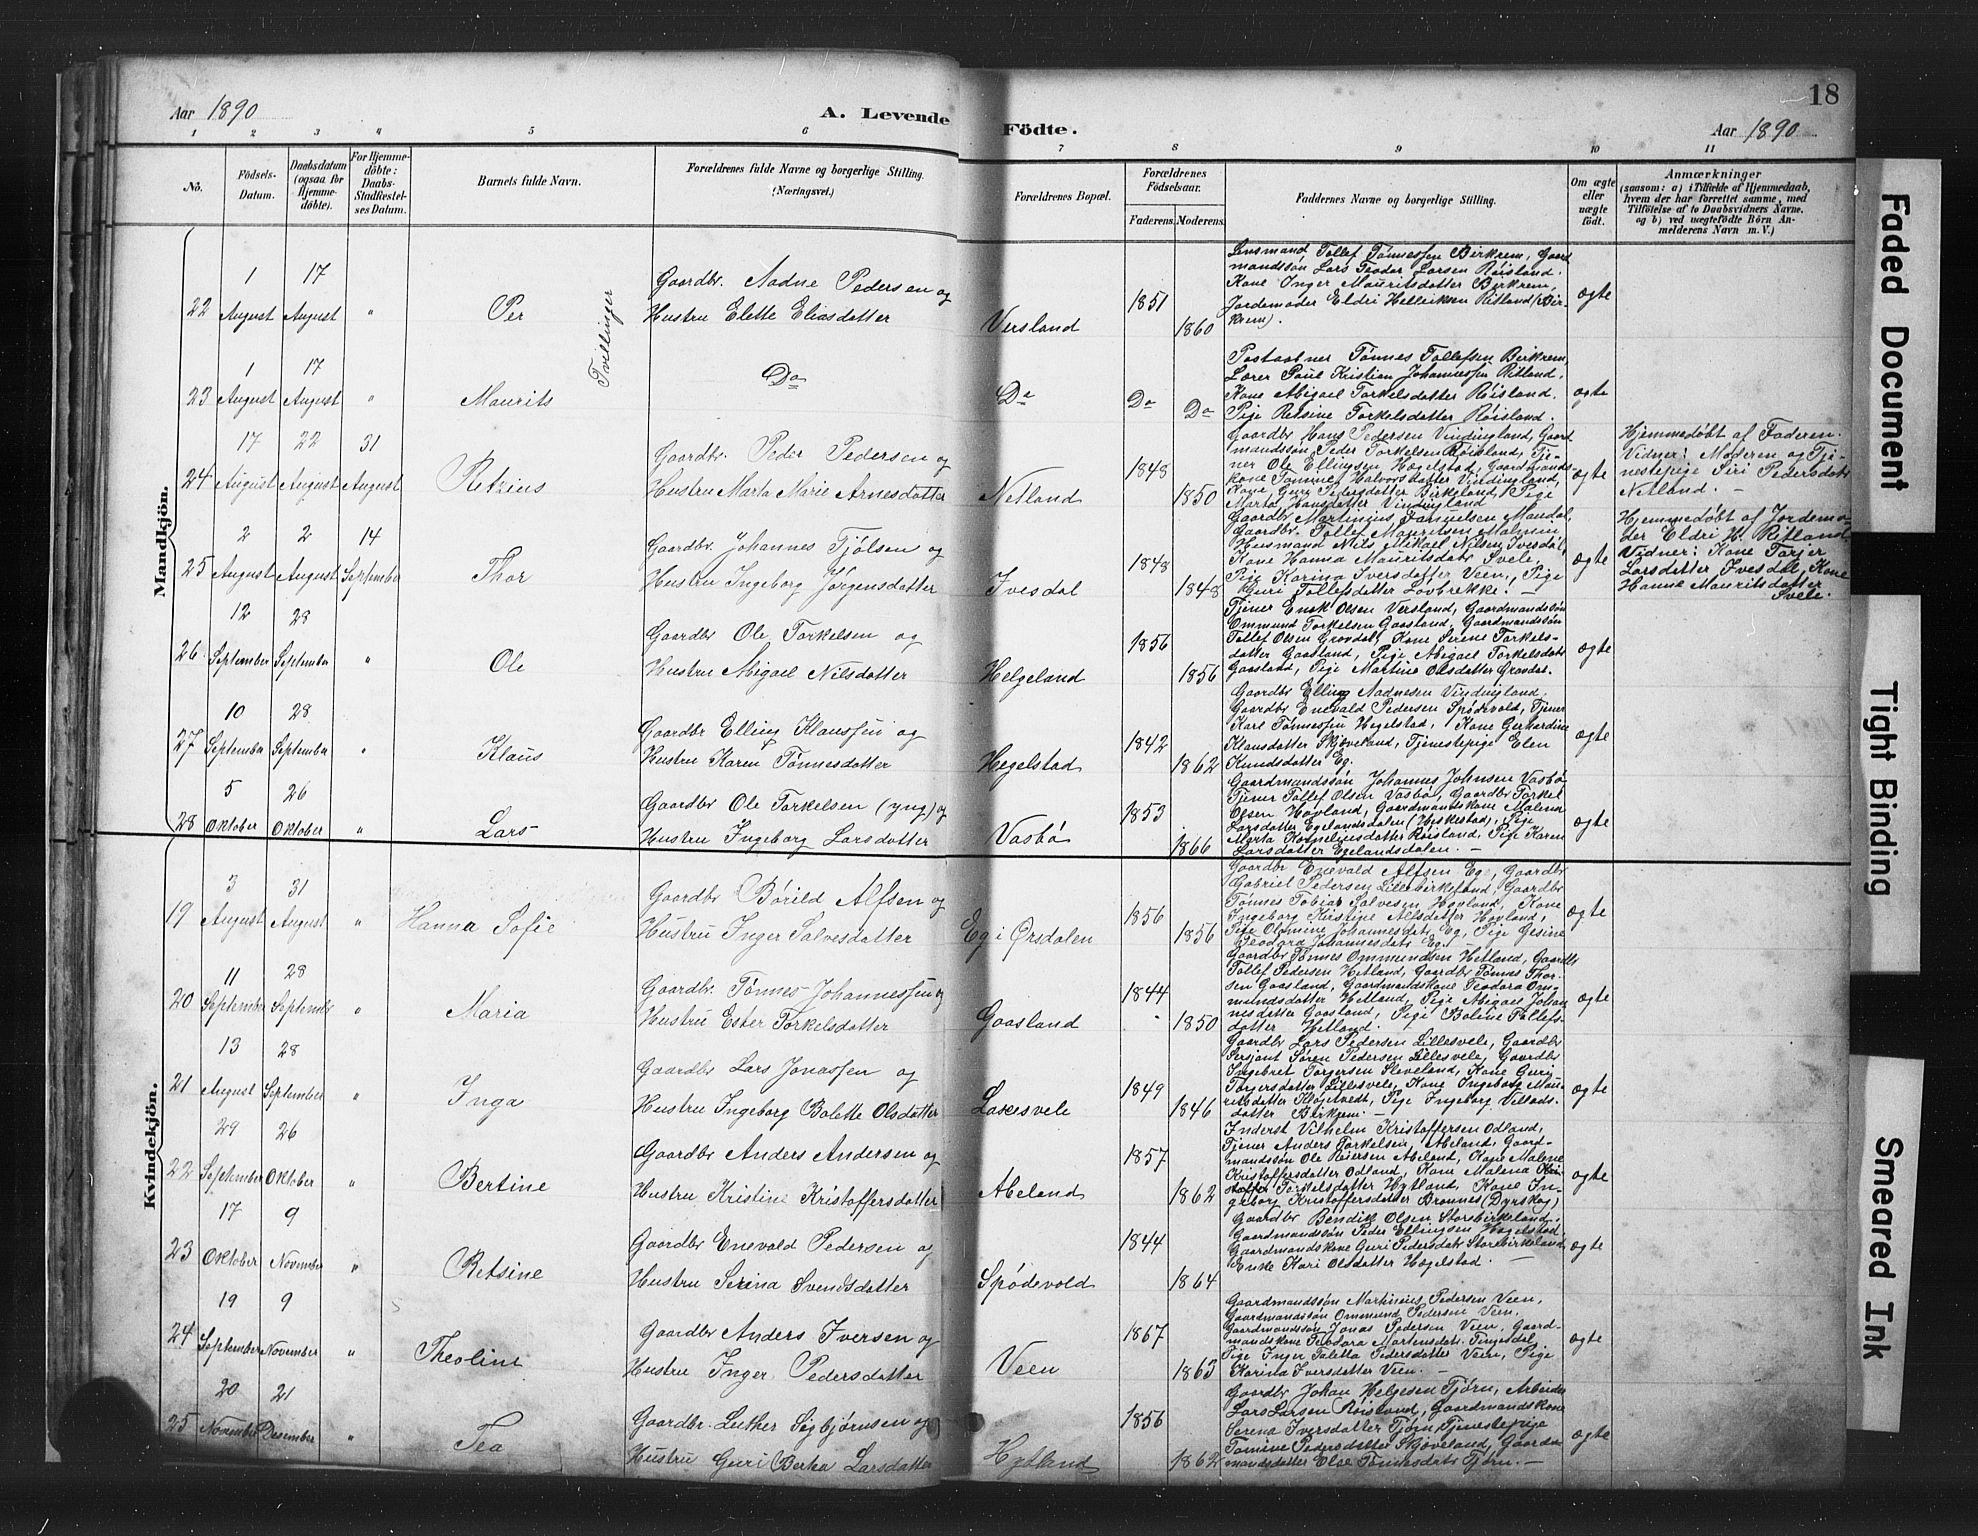 Aar 1890
A. Levende Födte.
18
Aar 1890
1 2 3 4 5 6 7 8 9 10 11
No.
Födsels-Datum.
Daabsdatum (ogsaa for Hjemmedöbte).
For Hjemmedöbte: Daabs-Stadfæstelses Datum.
Barnets fulde Navn.
Forældrenes fulde Navne og borgerlige Stilling. (Næringsvei.)
Forældrenes Bopæl.
Forældrenes Födselsaar.
Faderens. Moderens.
Faddernes Navne og borgerlige Stilling.
Om ægte eller uægte födt.
Anmærkninger
(saasom: a) i Tilfælde af Hjemmedaab, hvem der har forrettet samme, med Tilföielse af to Daabsvidners Navne, og b) ved uægtefödte Börn Anmelderens Navn m. V.)
Mandkjön.
22
1 August
17 August
"
Per
Tvillinger
Gaardbr. Aadne Pedersen og
Hustru Elette Eliasdatter
Versland
1851
1860
Lensmand Tollef Tønnessen Birkrem, Gaard
mandssøn Lars Teodor Larsen Røisland.
Kone Inger Mauritsdatter Birkrem,
Jordemoder Eldri Helleiksen Ritland (Bir-
krem).
ægte
23
1 August
17 August
"
Maurits
Do
Do
Do
Do
Postaabner Tønnes Tollefsen Birkrem,
Lærer Paul Kristian Johannessen Ritland,
Kone Abigael Torkelsdatter Røisland.
Pige Retsine Torkelsdatter Røisland.
ægte
24
17 August
22 August
31 August
Retzius
Gaardbr. Peder Pedersen og
Hustru Marta Marie Arnesdatter
Netland
1848
1850
Gaardbr Hans Pedersen Vindingland, Gaard
mandssøn Peder Torkelsen Røisland, Tje-
ner Ole Ellingsen Hægelstad, Gaardmands
kone Tomine Halvorsdatter Vindingland,
Kone Guri Pedersdatter Birkeland, Pige
Marta Hansdatter Vindingland
ægte
Hjemmedøbt af Faderen.
Vidner: Moderen og Tje-
nestepige Siri Pedersdatr
Netland. —
25
2 August
2 August
14 September
Thor
Gaardbr. Johannes Tjølsen og
Hustru Ingeborg Jørgensdatter
Ivesdal
1848
1848
Gaardbr Martinius Samuelsen Mandal,
Gaardbr. Tollef Mauritsen Malmin
Husmand Nils Mikael Nilsen Ivesdal,
Kone Hanna Mauritsdatr Svele,
Pige Karina Iversdatter Veen, Pige
Guri Tollefsdatter Lovbrekke. —
ægte
Hjemmedøbt af Jordemo-
der Eldri H. Ritland
Vidner: Kone Tarjer
Larsdatter Ivesdal, Kone
Hanne Mauritsdatter
Svele.
26
12 September
28 September
"
Ole
Gaardbr Ole Torkelsen og
Hustru Abigael Nilsdatter
Helgeland
1856
1856
Tjener Enok Olsen Versland, Gaardmandssøn
Ommund Torkelsen Gaasland, Gaardmandssøn
Tollef Olsen Grovdal, Kone Serene Torkels-
datter Gaasland, Pige Abigael Torkelsdatr
Gaasland, Pige Martine Olsdatter Grovdal.
ægte
27
10 September
28 September
"
Klaus
Gaardbr Elling Klaussen og
Hustru Karen Tønnesdatter
Hegelstad
1842
1862
Gaardbr Elling Aadnesen Vindingland.
Gaardbr Enevald Pedersen Spødevold, Tjener
Karl Tønnessen Hegelstad, Kone Gerhardine
Klausdatter Skjæveland, Tjenestepige Elen
Knudsdatter Eg.
ægte
28
5 Oktober
26 Oktober
"
Lars
Gaardbr Ole Torkelsen (yng) og
Hustru Ingeborg Larsdatter
Vasbø
1853
1866
Gaardmandssøn Johannes Johnsen Vasbø
Tjener Tollef Olsen Vasbø, Gaardbr Torkel
Olsen Hovland, Gaardmandskone Malena
Larsdatter Egelandsdalen (Heskestad), Pige
Marta Korneliusdatter Røisland, Pige Karen
Larsdatter Egelandsdalen. —
ægte
Kvindekjön.
19
3 August
31 August
"
Hanna Sofie
Gaardbr Børild Alfsen og
Hustru Inger Salvesdatter
Eg i Ørsdalen
1856
1856
Gaardbr Enevald Alfsen Eg, Gaardbr
Gabriel Pedersen Lillebirkeland, Gaardbr
Tønnes Tobias Salvesen Hovland, Kone
Ingeborg Kristine Alfsdatter Hovland,
Pige Olemine Johannesdatr Eg, Pige Gesine
Teodora Johannesdatr Eg.
ægte
20
11 September
28 September
"
Maria
Gaardbr. Tønnes Johannessen og
Hustru Ester Torkelsdatter
Gaasland
1844
1850
Gaardbr Tønnes Ommundsen Hetland, Gaardbr
Tollef Pedersen Hetland, Gaardbr Tønnes Thor-
sen Gaasland, Gaardmandskone Teodora Om-
mundsdatter Hetland, Pige Abigael Johan
nesdatter Gaasland, Pige Bolene Tollefs-
datter Hetland.
ægte
21
13 August
28 September
"
Inga
Gaardbr Lars Jonassen og
Hustru Ingeborg Bolette Olsdatter
Laxesvele
1849
1846
Gaardbr Lars Pedersen Lillesvele, Gaardbr
Sersjant Søren Pedersen Lillesvele, Gaardbr
Ingebret Torgersen Sleveland, Kone Guri
Torgersdatter Lillesvele, Kone Ingeborg Mau-
ritsdatter Kløgetvedt, Pige Ingeborg Villads-
datter Birkrem. —
ægte
22
29 September
26 Oktober
"
Bertine
Gaardbr Anders Andersen og
Hustru Kristine Kristoffersdatter
Abeland
1857
1862
Inderst Vilhelm Kristoffersen Odland,
Tjener Anders Torkelsen, Abeland, Gaard-
mandssøn Ole Peiersen Abeland, Kone Malene
Kristoffersdatter Odland, Kone Malena
Torkelsdatter Hytland, Kone In-
geborg Kristoffersdatter Bronnes (Dyrskog)
ægte
23
17 Oktober
9 November
"
Retsine
Gaardbr Enevald Pedersen og
Hustru Serina Svendsdatter
Spödevold
1844
1864
Gaardbr Bendik Olsen Storebirkeland,
Gaardmandssøn Peder Ellingsen Hægelstad
Gaardmandskone Guri Pedersdatr Storebirkeland
Enke Kari Olsdatter Hægelstad. —
ægte
24
19 September
9 November
"
Theoline
Gaardbr Anders Iversen og
Hustru Inger Pedersdatter
Veen
1867
1863
Gaardmandssøn Martinius Pedersen Veen,
Gaardmandssøn Ommund Pedersen Veen,
Gaardmandssøn Jonas Pedersen Veen, Gaard-
mandskone Teodora Mortensdatr Tingesdal
Pige Inger Taletta Pedersdatter Veen, Pige
Karina Iversdatter Veen. —
ægte
25
20 November
21 Desember
"
Tea
Gaardbr. Luther Sigbjørnsen og
Hustru Guri Berta Larsdatter
Hytland
1856
1862
Gaardbr Johan Helgesen Tjørn, Arbeider
Lars Larsen Røisland, Gaardmandskone
Serena Iversdatter Tjørn, Tjenestepige
Tomine Pedersdatter Skjæveland, Gaard
mandsdatter Else Tønnesdatr Tjørn. —
ægte
Faded Document
Tight Binding
Smeared Ink